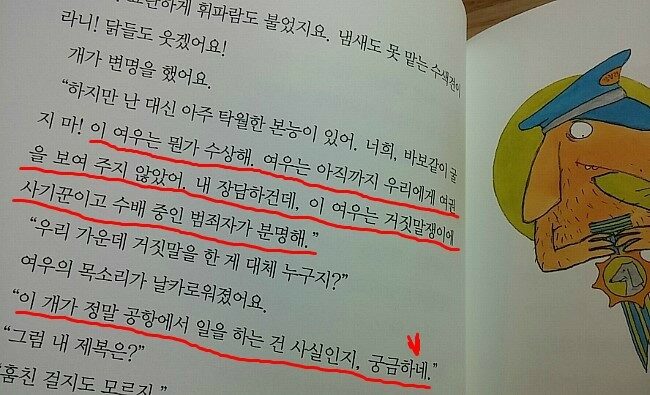 요란하게 휘파람도 불었지요. 냄새도 못 맡는 수색견이
라니! 닭들도 웃겠어요!
개가 변명을 했어요.
“하지만 난 대신 아주 탁월한 본능이 있어. 너희, 바보같이 굴
지 마! 이 여우는 뭔가 수상해. 여우는 아직까지 우리에게 여권
을 보여 주지 않았어. 내 장담하건데, 이 여우는 거짓말쟁이에
사기꾼이고 수배 중인 범죄자가 분명해.”
“우리 가운데 거짓말을 한 게 대체 누구지?”
여우의 목소리가 날카로워졌어요.
“이 개가 정말 공항에서 일을 하는 건 사실인지, 궁금하네.”
“그럼 내 제복은?”
“훔친 걸지도 모르지.”